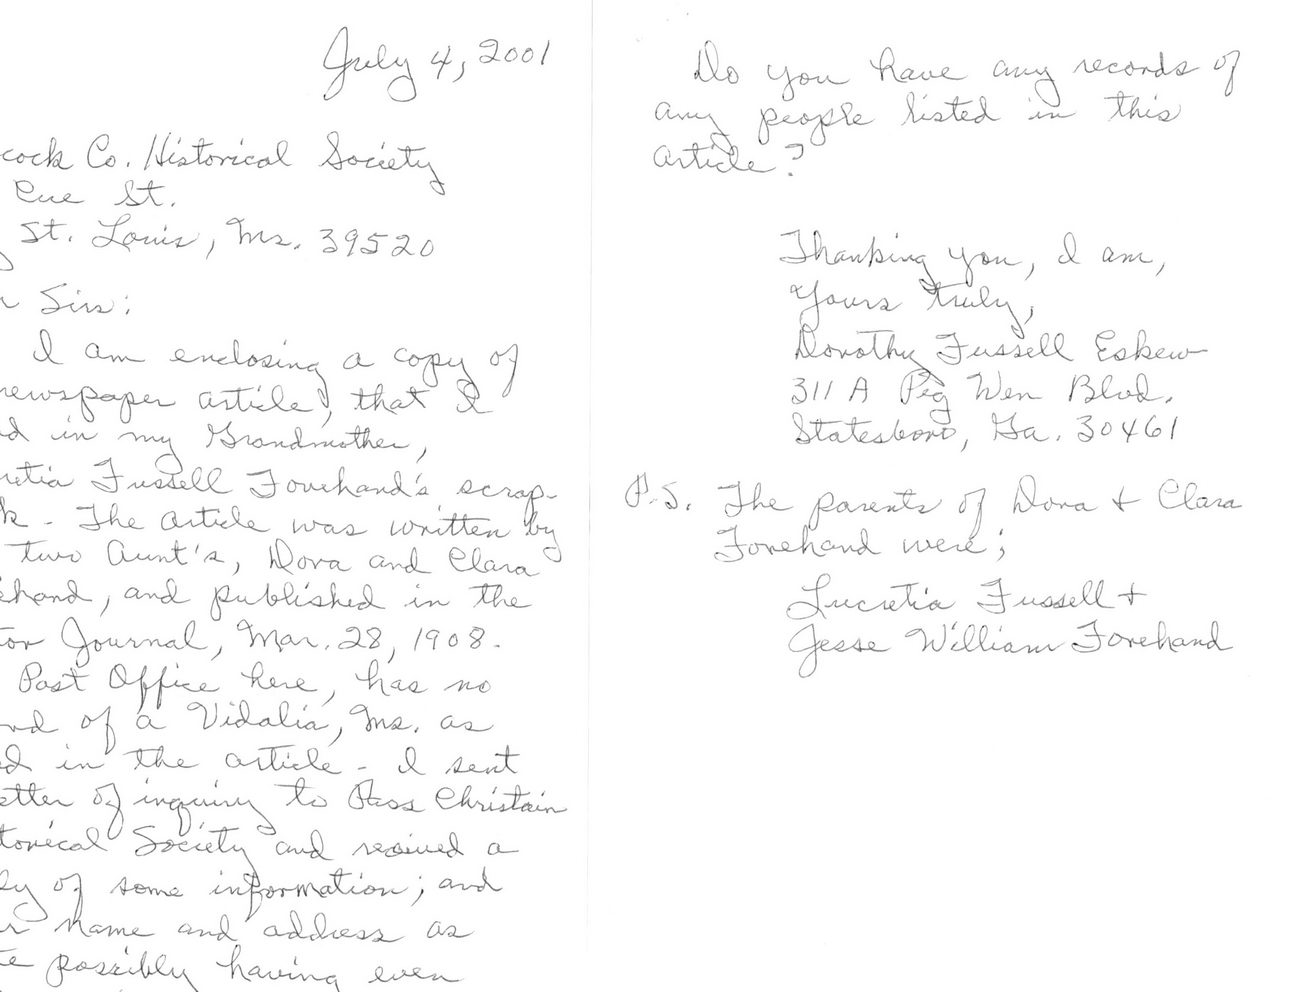 July 4, 2001
cock Co. Historical Society
Cue St.
St. Louis, Ms. 39520
Sirs:
I am enclosing a copy of
newspaper article, that I
d in my Grandmother,
retia Fussell Forehand's scrap-
k. The article was written by
two Aunt's, Dora and Clara
ehand, and published in the
ton Journal, Mar. 28, 1908.
Post Office here, has no
rd of a Vidalia, Ms. as
ed in the article. I sent
etter of inquiry to Pass Christain
torical Society and received a
py of some information; and
r name and address as
te possibly having even
Do you have any records of
any people listed in this
article?
Thanking you, I am,
Yours truly,
Dorothy Fussell Eskew
311 A Peg Wen Blvd.
Statesboro, Ga. 30461
P.S. The parents of Dora + Clara
Forehand were;
Lucretia Fussell +
Jesse William Forehand